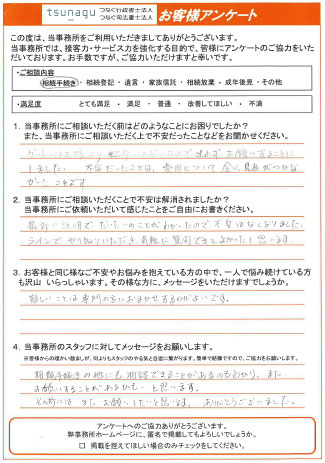 tsunagu つなぐ行政書士法人
つなぐ司法書士法人
お客様アンケート
この度は、当事務所をご利用いただきましてありがとうございます。
当事務所では、接客力・サービス力を強化する目的で、皆様にアンケートのご協力をいた
だいております。お手数ですが、ご協力いただけますと幸いです。
・ご相談内容
相続手続き ・相続登記 ・遺言 ・家族信託 ・相続放棄 ・成年後見 ・その他
・満足度 とても満足 ・ 満足 ・ 普通 ・ 改善してほしい ・ 不満
1. 当事務所にご相談いただく前はどのようなことにお困りでしたか?
また、当事務所にご相談いただく上で不安だったことなどをお聞かせください。
いただいたので 迷わず お願いすることに
しました。 不安だったことは、費用について 全く見当がつかな
かったことです
2. 当事務所にご相談いただくことで不安は解消されましたか?
当事務所にご依頼いただいて感じたことをご自由にお書きください。
最初の説明で だいたいのことがわかったので不安はなくなりました。
ラインで やり取りいただき、気軽に質問できてよかったと思います。
3. お客様と同じ様なご不安やお悩みを抱えている方の中で、一人で悩み続けている方
も沢山 いらっしゃいます。その様な方に、メッセージをいただけますでしょうか。
難しいことは専門の方におまかせするのがよいです。
4. 当事務所のスタッフに対してメッセージをお願いします。
※皆様からの暖かい励ましが、何よりもスタッフのやる気と自信に繋がります。簡単で結構ですので、ご協力をお願いします。
相続手続きの他にも 相談できることがあるのもわかり、また
お願いすることがあるかも…と思います。
その時には またお願いしたいと思います。 ありがとうございました。
アンケートへのご協力ありがとうございます。
弊事務所ホームページに、匿名で掲載してもよろしいでしょうか。
□ 掲載を控えてほしい場合のみチェックをしてください。